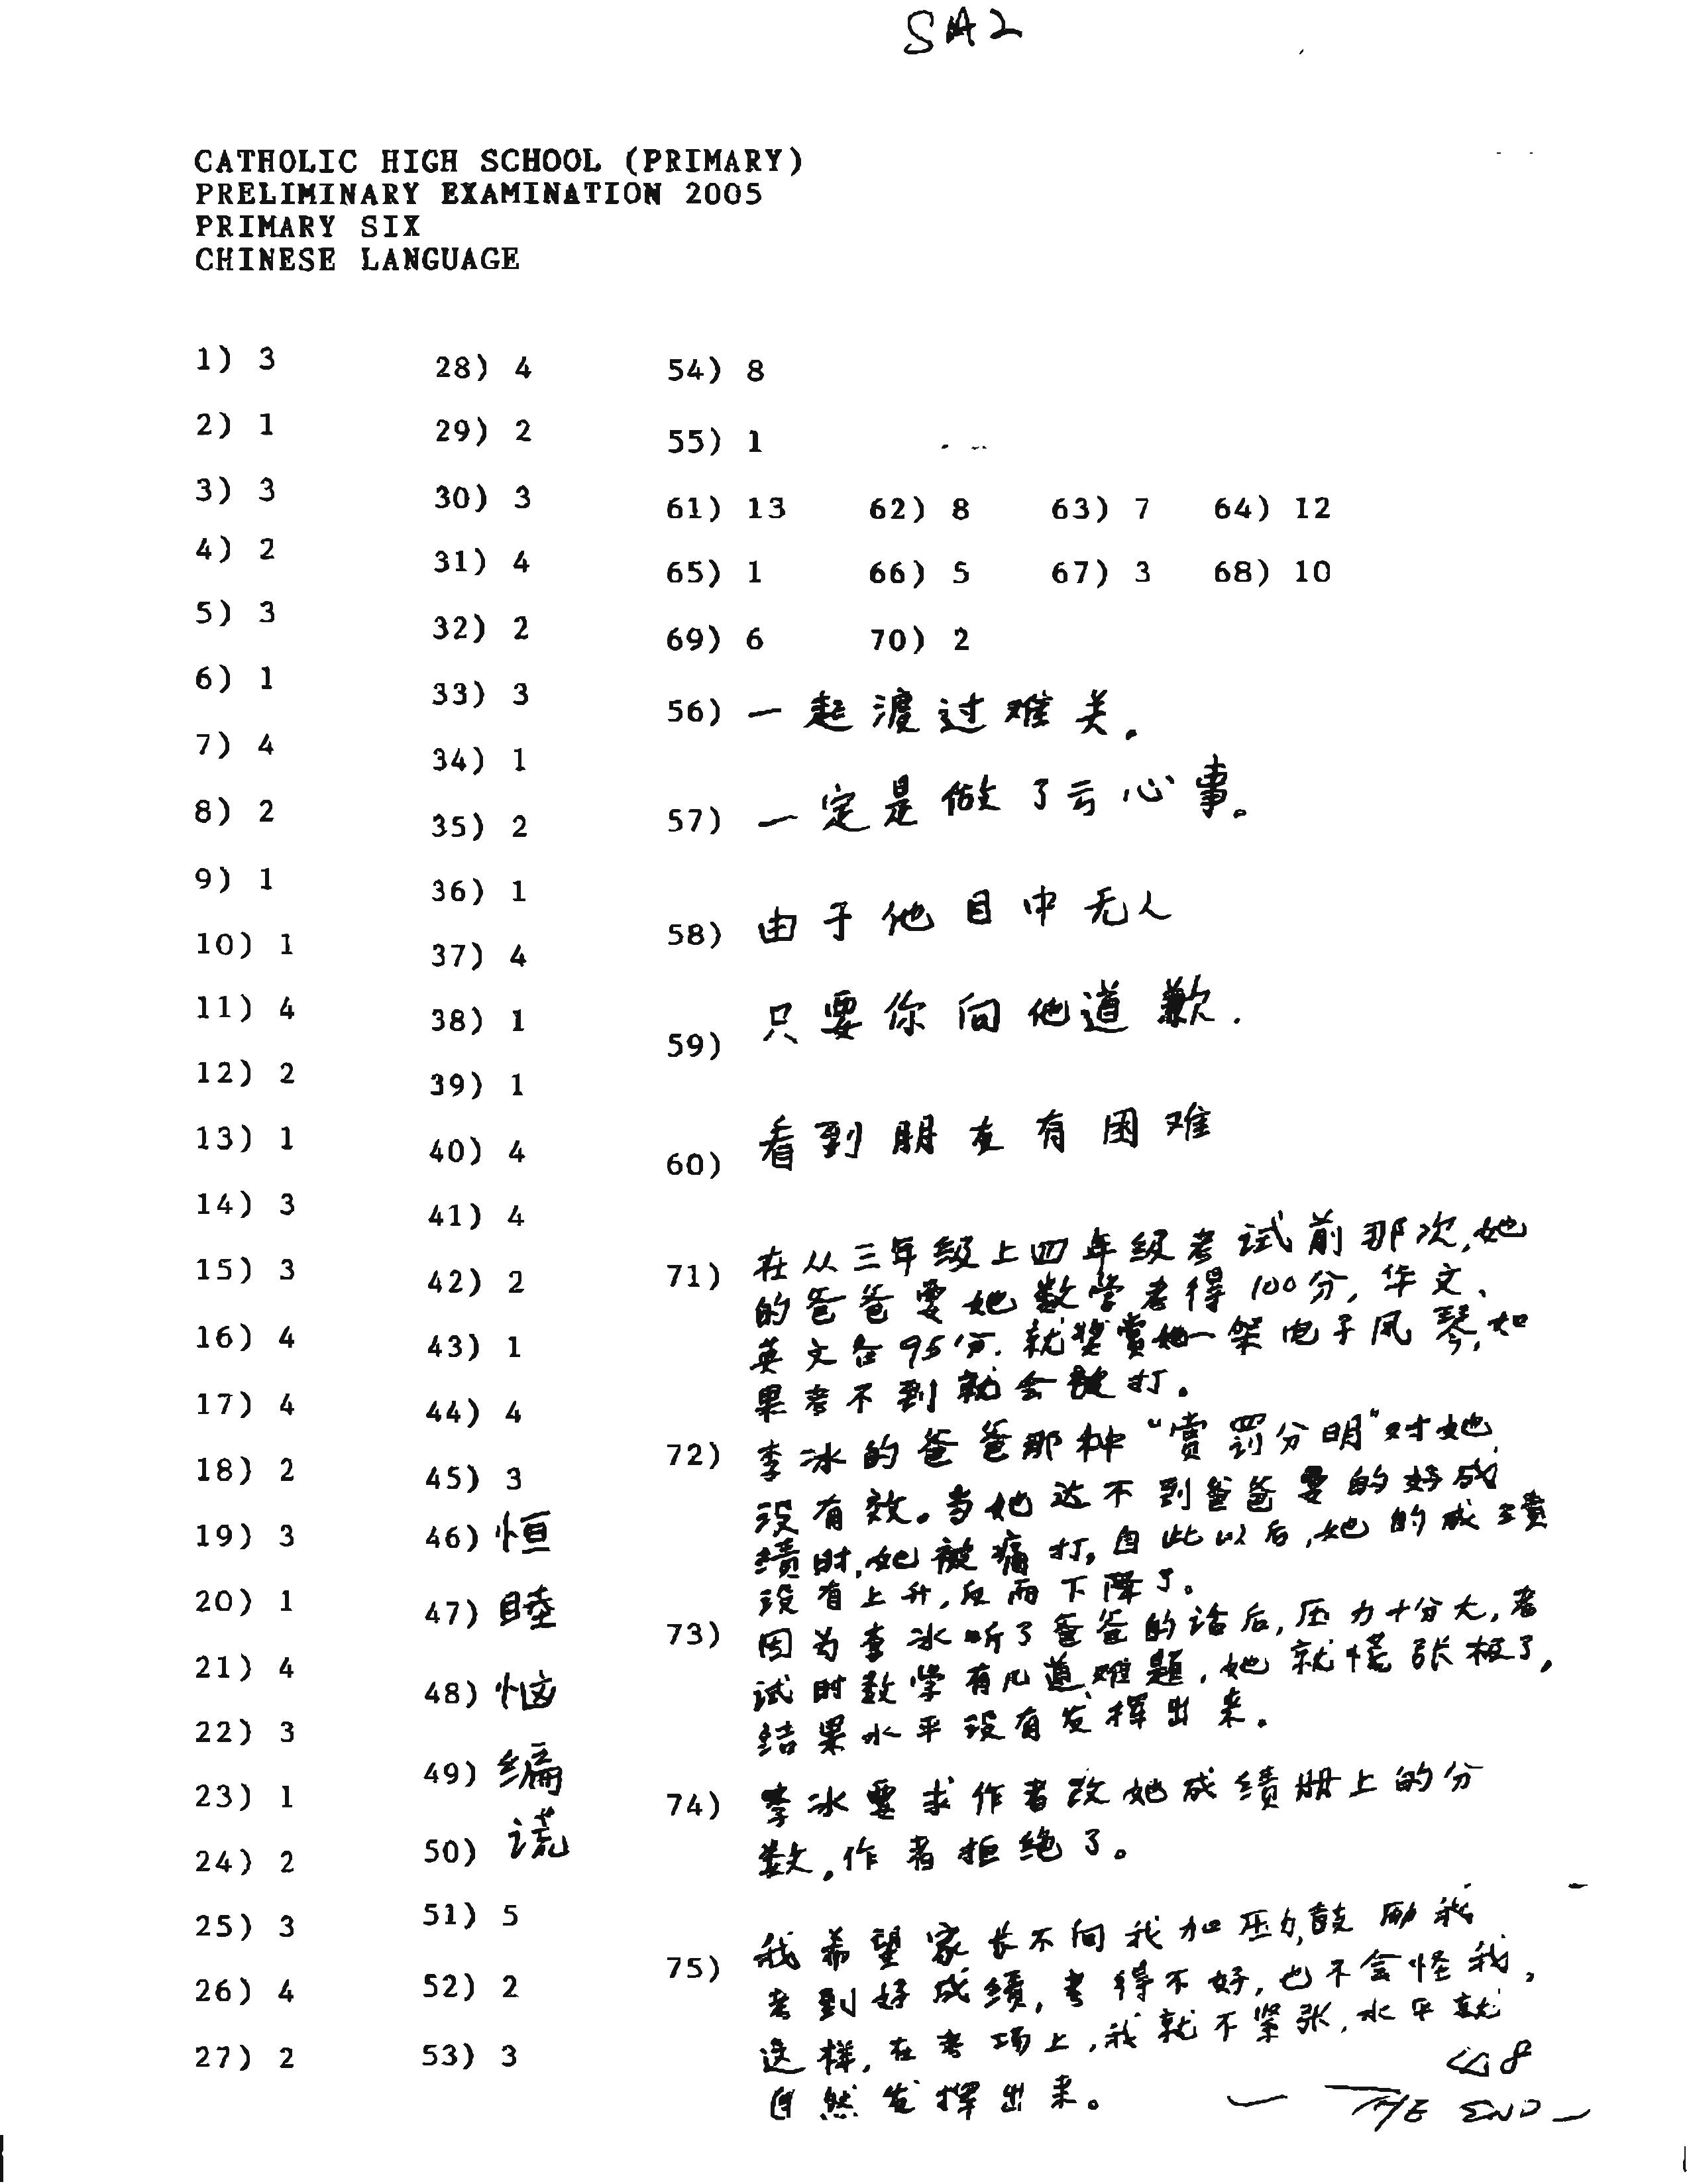 SA2
CATHOLIC HIGH SCHOOL (PRIMARY)
PRELIMINARY EXAMINATION 2005
PRIMARY SIX
CHINESE LANGUAGE
1) 3
2) 1
3) 3
4) 2
5) 3
6) 1
7) 4
8) 2
9) 1
10) 1
11) 4
12) 2
13) 1
14) 3
15) 3
16) 4
17) 4
18) 2
19) 3
20) 1
21) 4
22) 3
23) 1
24) 2
25) 3
26) 4
27) 2
28) 4
29) 2
30) 3
31) 4
32) 2
33) 3
34) 1
35) 2
36) 1
37) 4
38) 1
39) 1
40) 4
41) 4
42) 2
43) 1
44) 4
45) 3
46) 恒
47) 睦
48) 恼
49) 编
50) 谎
51) 5
52) 2
53) 3
54) 8
55) 1
61) 13 62) 8 63) 7 64) 12
65) 1 66) 5 67) 3 68) 10
69) 6 70) 2
56) 一起渡过难关。
57) 一定是做了亏心事。
58) 由于他目中无人
59) 只要你向他道歉.
60) 看到朋友有困难
71) 在从三年级上四年级考试前那次,她
的爸爸要她数学考得100分,华文、
英文各95分.就奖赏她一架电子风琴,如
果考不到就会被打。
72) 李冰的爸爸那种“赏罚分明”对她
没有效。当她达不到爸爸要的好成
绩时,她被痛打,自此以后,她的成绩
没有上升,反而下降了。
73) 因为李冰听了爸爸的话后,压力十分大,考
试时数学有几道难题,她就慌张极了,
结果水平没有发挥出来。
74) 李冰要求作者改她成绩册上的分
数,作者拒绝了。
75) 我希望家长不向我加压力,鼓励我
考到好成绩,考得不好,也不会怪我,
这样,在考场上,我就不紧张,水平就
自然发挥出来。
— THE END —